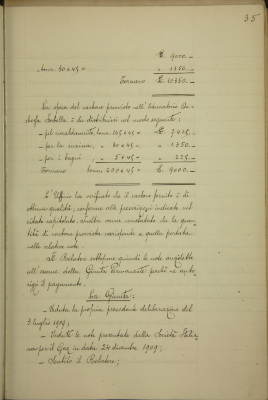 35
£ 9000.-
tonn. 30 a 45 = " 1350.-
Tornano £. 10350.-
La spesa del carbone provvisto all'
è da distribuirsi nel modo seguente:
- pel riscaldamento, tonn. 165 a 45 = £. 7425.-
- per la cucina, " 30 a 45 = " 1350.-
- per i bagni, " 5 a 45 = " 225.-
Tornano tonn. 200 a 45 = £. 9000.-
L'Ufficio ha verificato che il carbone fornito è di
ottima qualità, conforme alle prescrizioni indicate nel
capitolato, inoltre venne constatato che la quan-
tità di carbone provvista corrisponde a quella portata
nelle relative note.
Il Relatore sottopone quindi le note anzidette
all'esame della Giunta Permanente perchè ne auto-
rizzi il pagamento.
La Giunta:
- Veduta la propria precedente deliberazione del
3 luglio 1909;
- Vedute le note presentate dalla Società Italia-
na per il Gaz in data 24 dicembre 1909;
- Sentito il Relatore;